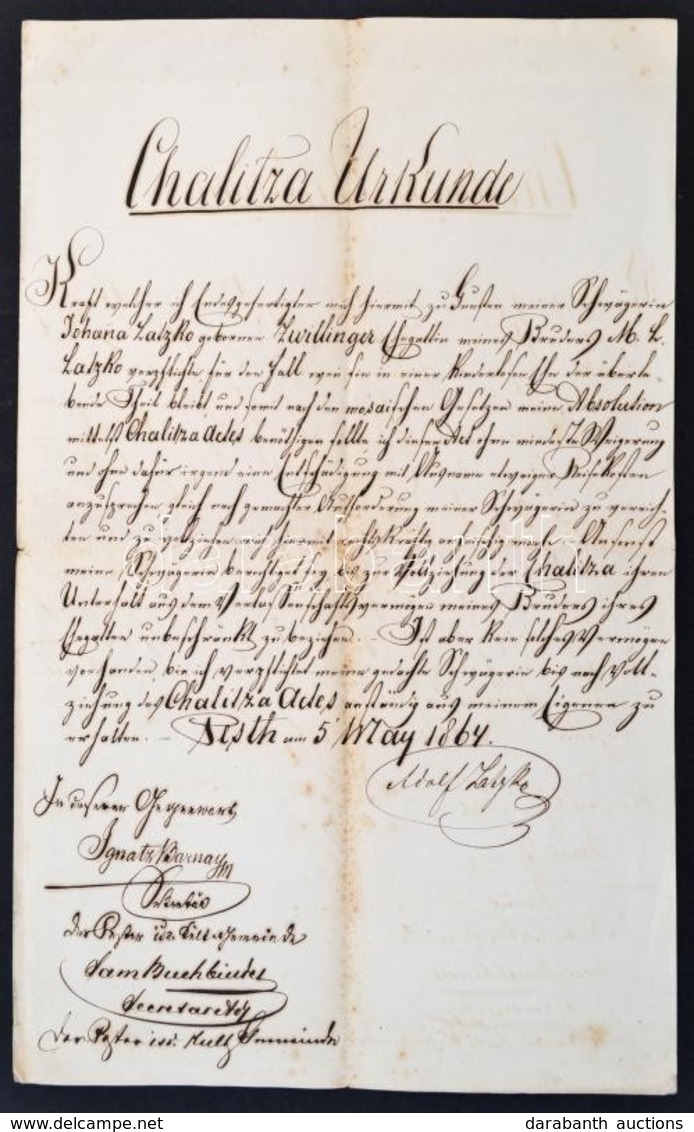 Chalitza Urkunde
Kraft welcher ich Endesgefertigter mich hiermit zu Gunsten meiner Schwägerin
Johana Latzko geborenen Zwillinger Ehegattin meines Bruders M. L.
Latzko verpflichte für den Fall wen sie in einer kinderlosen Ehe der überle
bende Theil bleibt und somit nach den mosaischen Gesetzen meine Absolution
mittelst Chalitza Actes benöthigen sollte ich diesen Act ohne mindeste Weigerung
und ohne dafür irgend eine Entschädigung mit Ausname etwaiger Reisekosten
anzusprechen gleich nach gemachter Aufforderung meiner Schwägerin zu verrich-
ten und zu vollziehen mich hiermit rechtskräftig anheischig mache.
meine Schwägerin berechtiget sey bis zur Vollziehung der Chalitza ihren
Unterhalt aus dem Verlassenschaftsvermögen meines Bruders ihres
Ehegatten unbeschränkt zu beziehen. – Ist aber kein solches Vermögen
vorhanden bin ich verpflichtet meine gedachte Schwägerin bis nach Voll-
ziehung des Chalitza Actes anständig aus meinem Eigenen zu
erhalten. – Pesth am 5 May 1864.
Adolf Latzko
In unserer Gegenwart
Ignatz Barnay
Sekretär
der Pester isr. Cultusgemeinde
Sam Buchbinder
Secretär
der Pester isr. Kult. Gemeinde
darabanth
www.delcampe.net
darabanth auctions